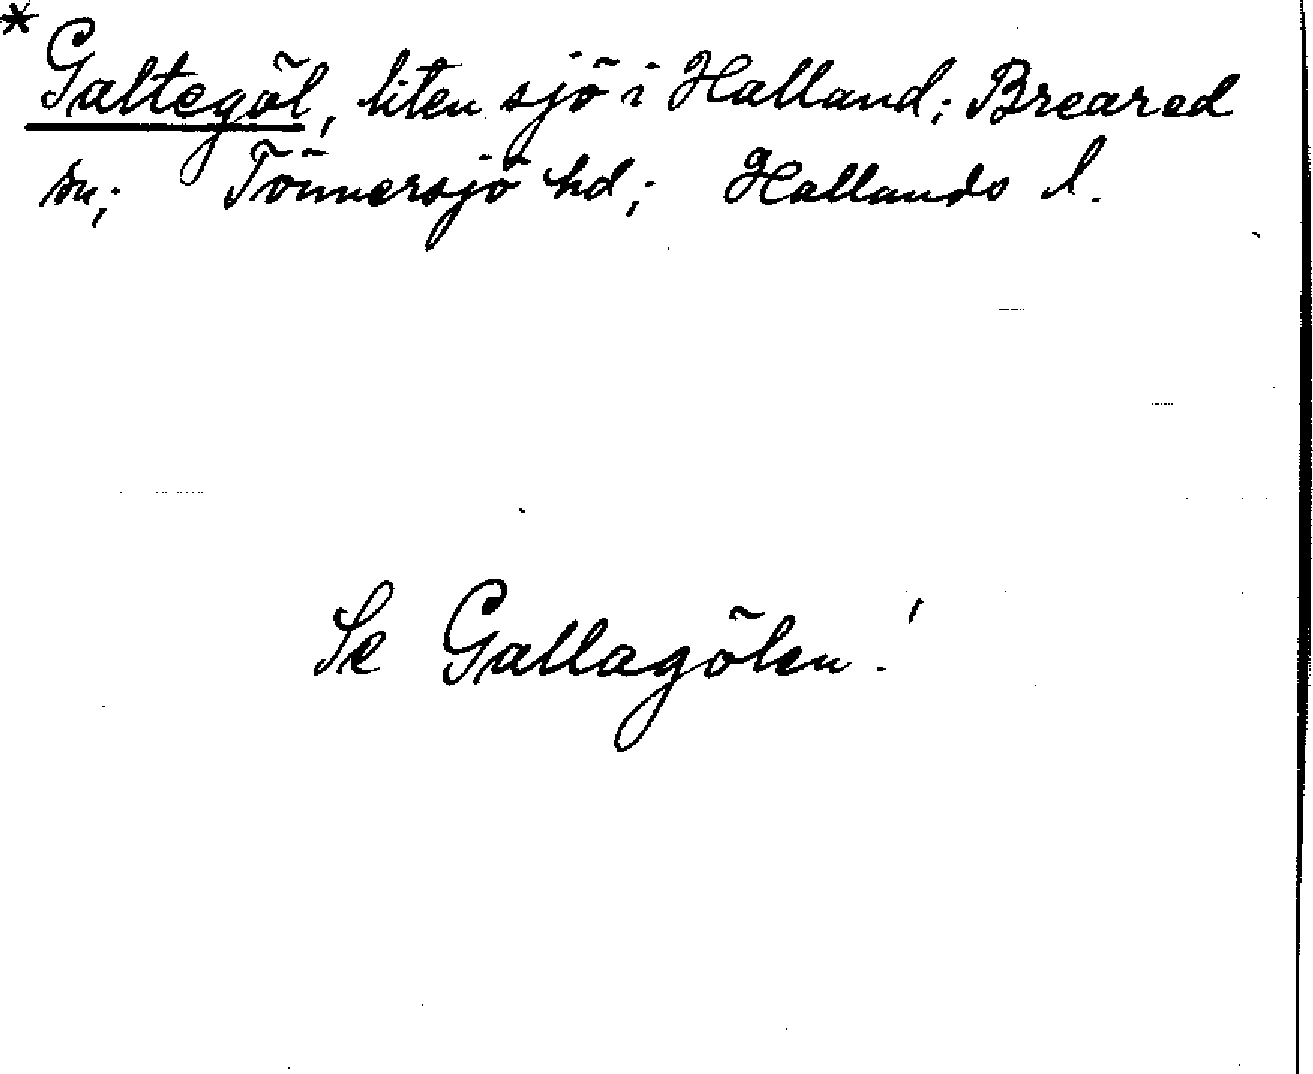 * Galtegöl, liten sjö i Halland; Breared
sn; Tönnersjö hd; Hallands l.
Se Gallagölen!